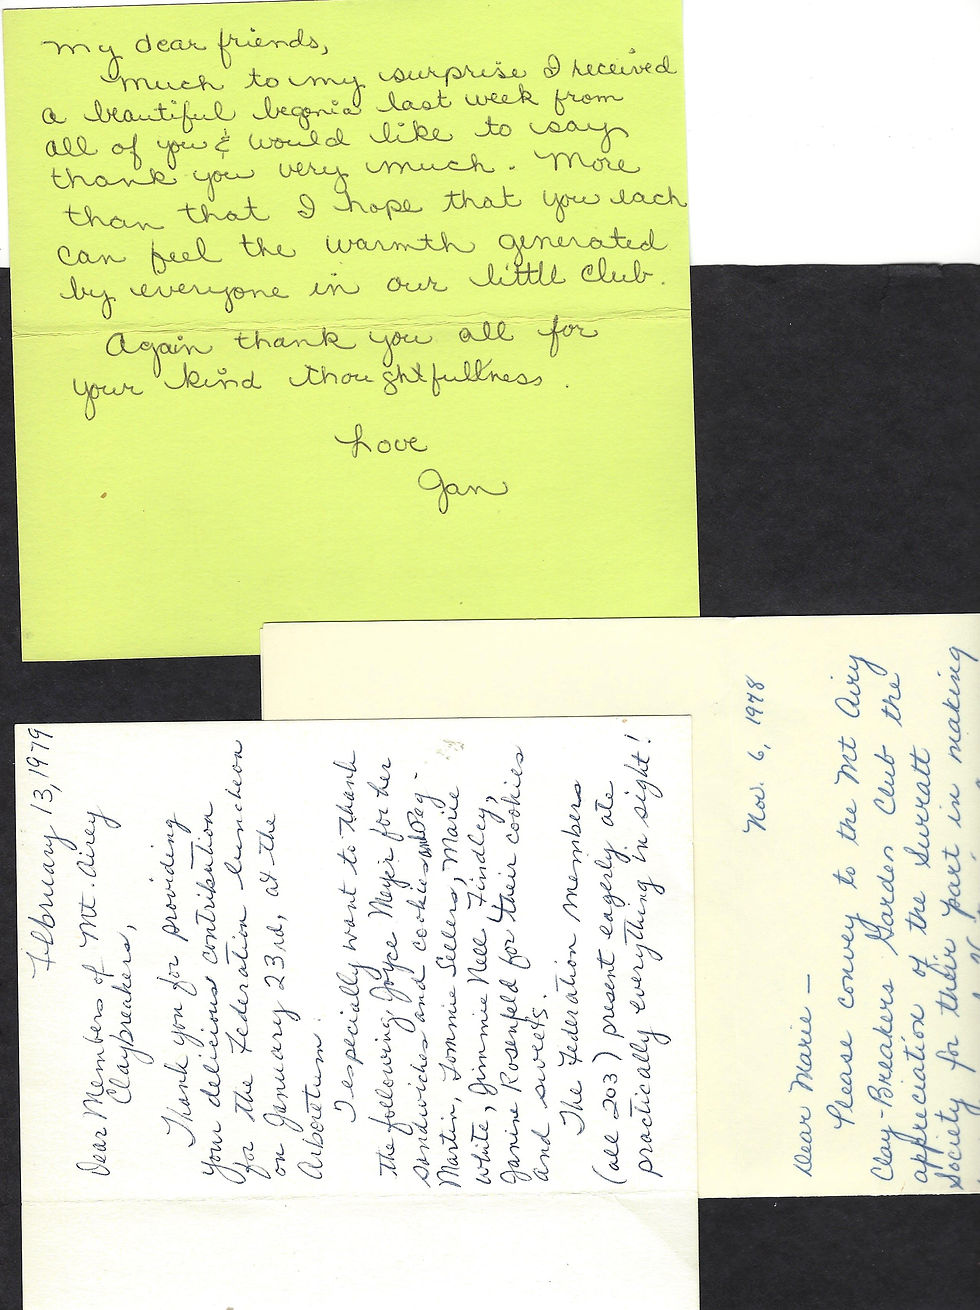 My dear friends,
Much to my surprise I received
a beautiful begonia last week from
all of you & would like to say
thank you very much. More
than that I hope that you each
can feel the warmth generated
by everyone in our little club.
Again thank you all for
your kind thoughtfullness.
Love
Jan
February 13, 1979
Dear Members of Mt. Airey
Claybreakers,
Thank you for providing
your delicious contribution
for the Federation luncheon
on January 23rd, at the
Arboretum.
I especially want to thank
the following: Joyce Meyer for her
sandwiches and cookies and Peg
Martin, Tommie Sellers, Marie
White, Jimmie Nell Findley,
Janine Rosenfeld for their cookies
and sweets.
The Federation members
(all 203) present eagerly ate
practically everything in sight!
Nov. 6, 1978
Dear Marie —
Please convey to the Mt Airy
Clay-Breakers Garden Club the
appreciation of the Surratt
Society for their part in making